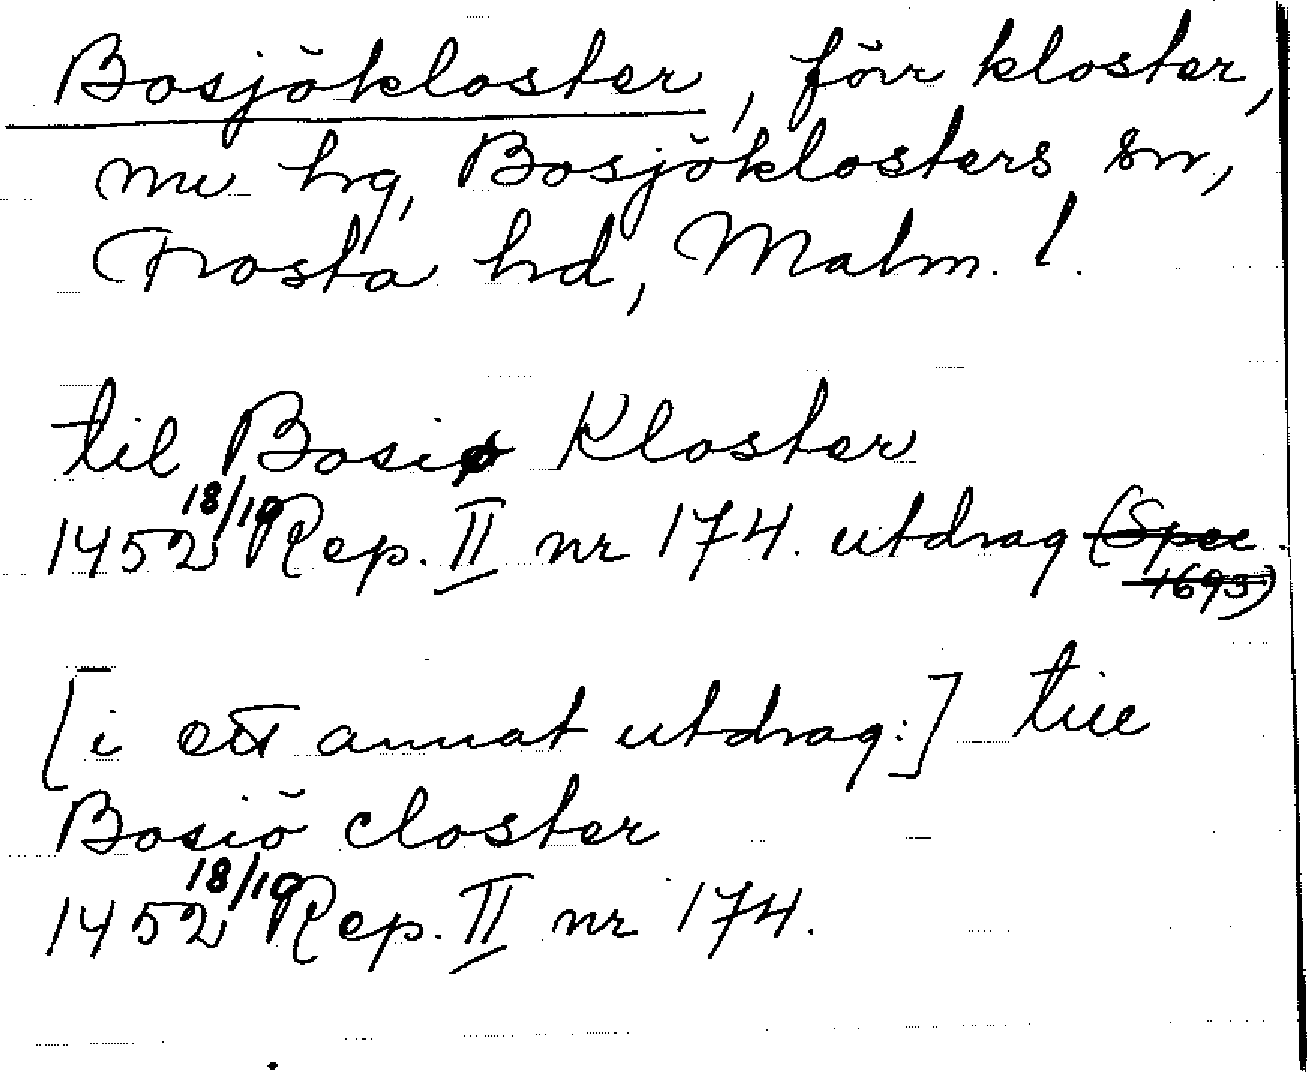 Bosjökloster, förr kloster,
nu hg, Bosjöklosters sn,
Frosta hd, Malm. l.
til Bosiø Kloster
1452 18/10 Rep. II nr 174. utdrag (Spec.
1693)
[i ett annat utdrag:] till
Bosiö closter
1452 18/10 Rep. II nr 174.